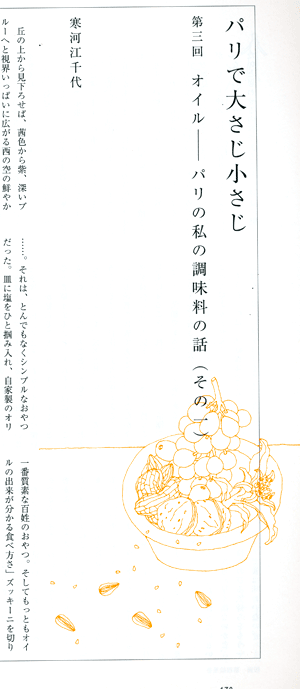 パリで大さじ小さじ
第三回　オイル――パリの私の調味料の話（その一）
寒河江千代
丘の上から見下ろせば、茜色から紫、深いブ
ルーへと視界いっぱいに広がる西の空の鮮やか
……。それは、とんでもなくシンプルなおやつ
だった。皿に塩をひと掴み入れ、自家製のオリ
一番質素な百姓のおやつ。そしてもっともオイ
ルの出来が分かる食べ方さ」ズッキーニを切り